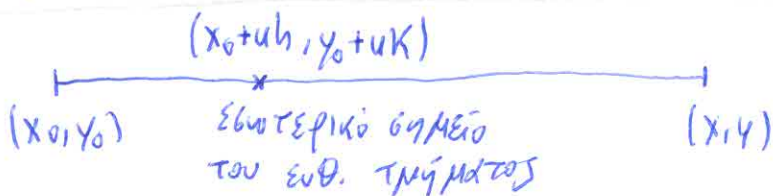 (x₀+uh, y₀+uK)
(x₀,y₀)
(x,y)
εσωτερικό σημείο
του ευθ. τμήματος